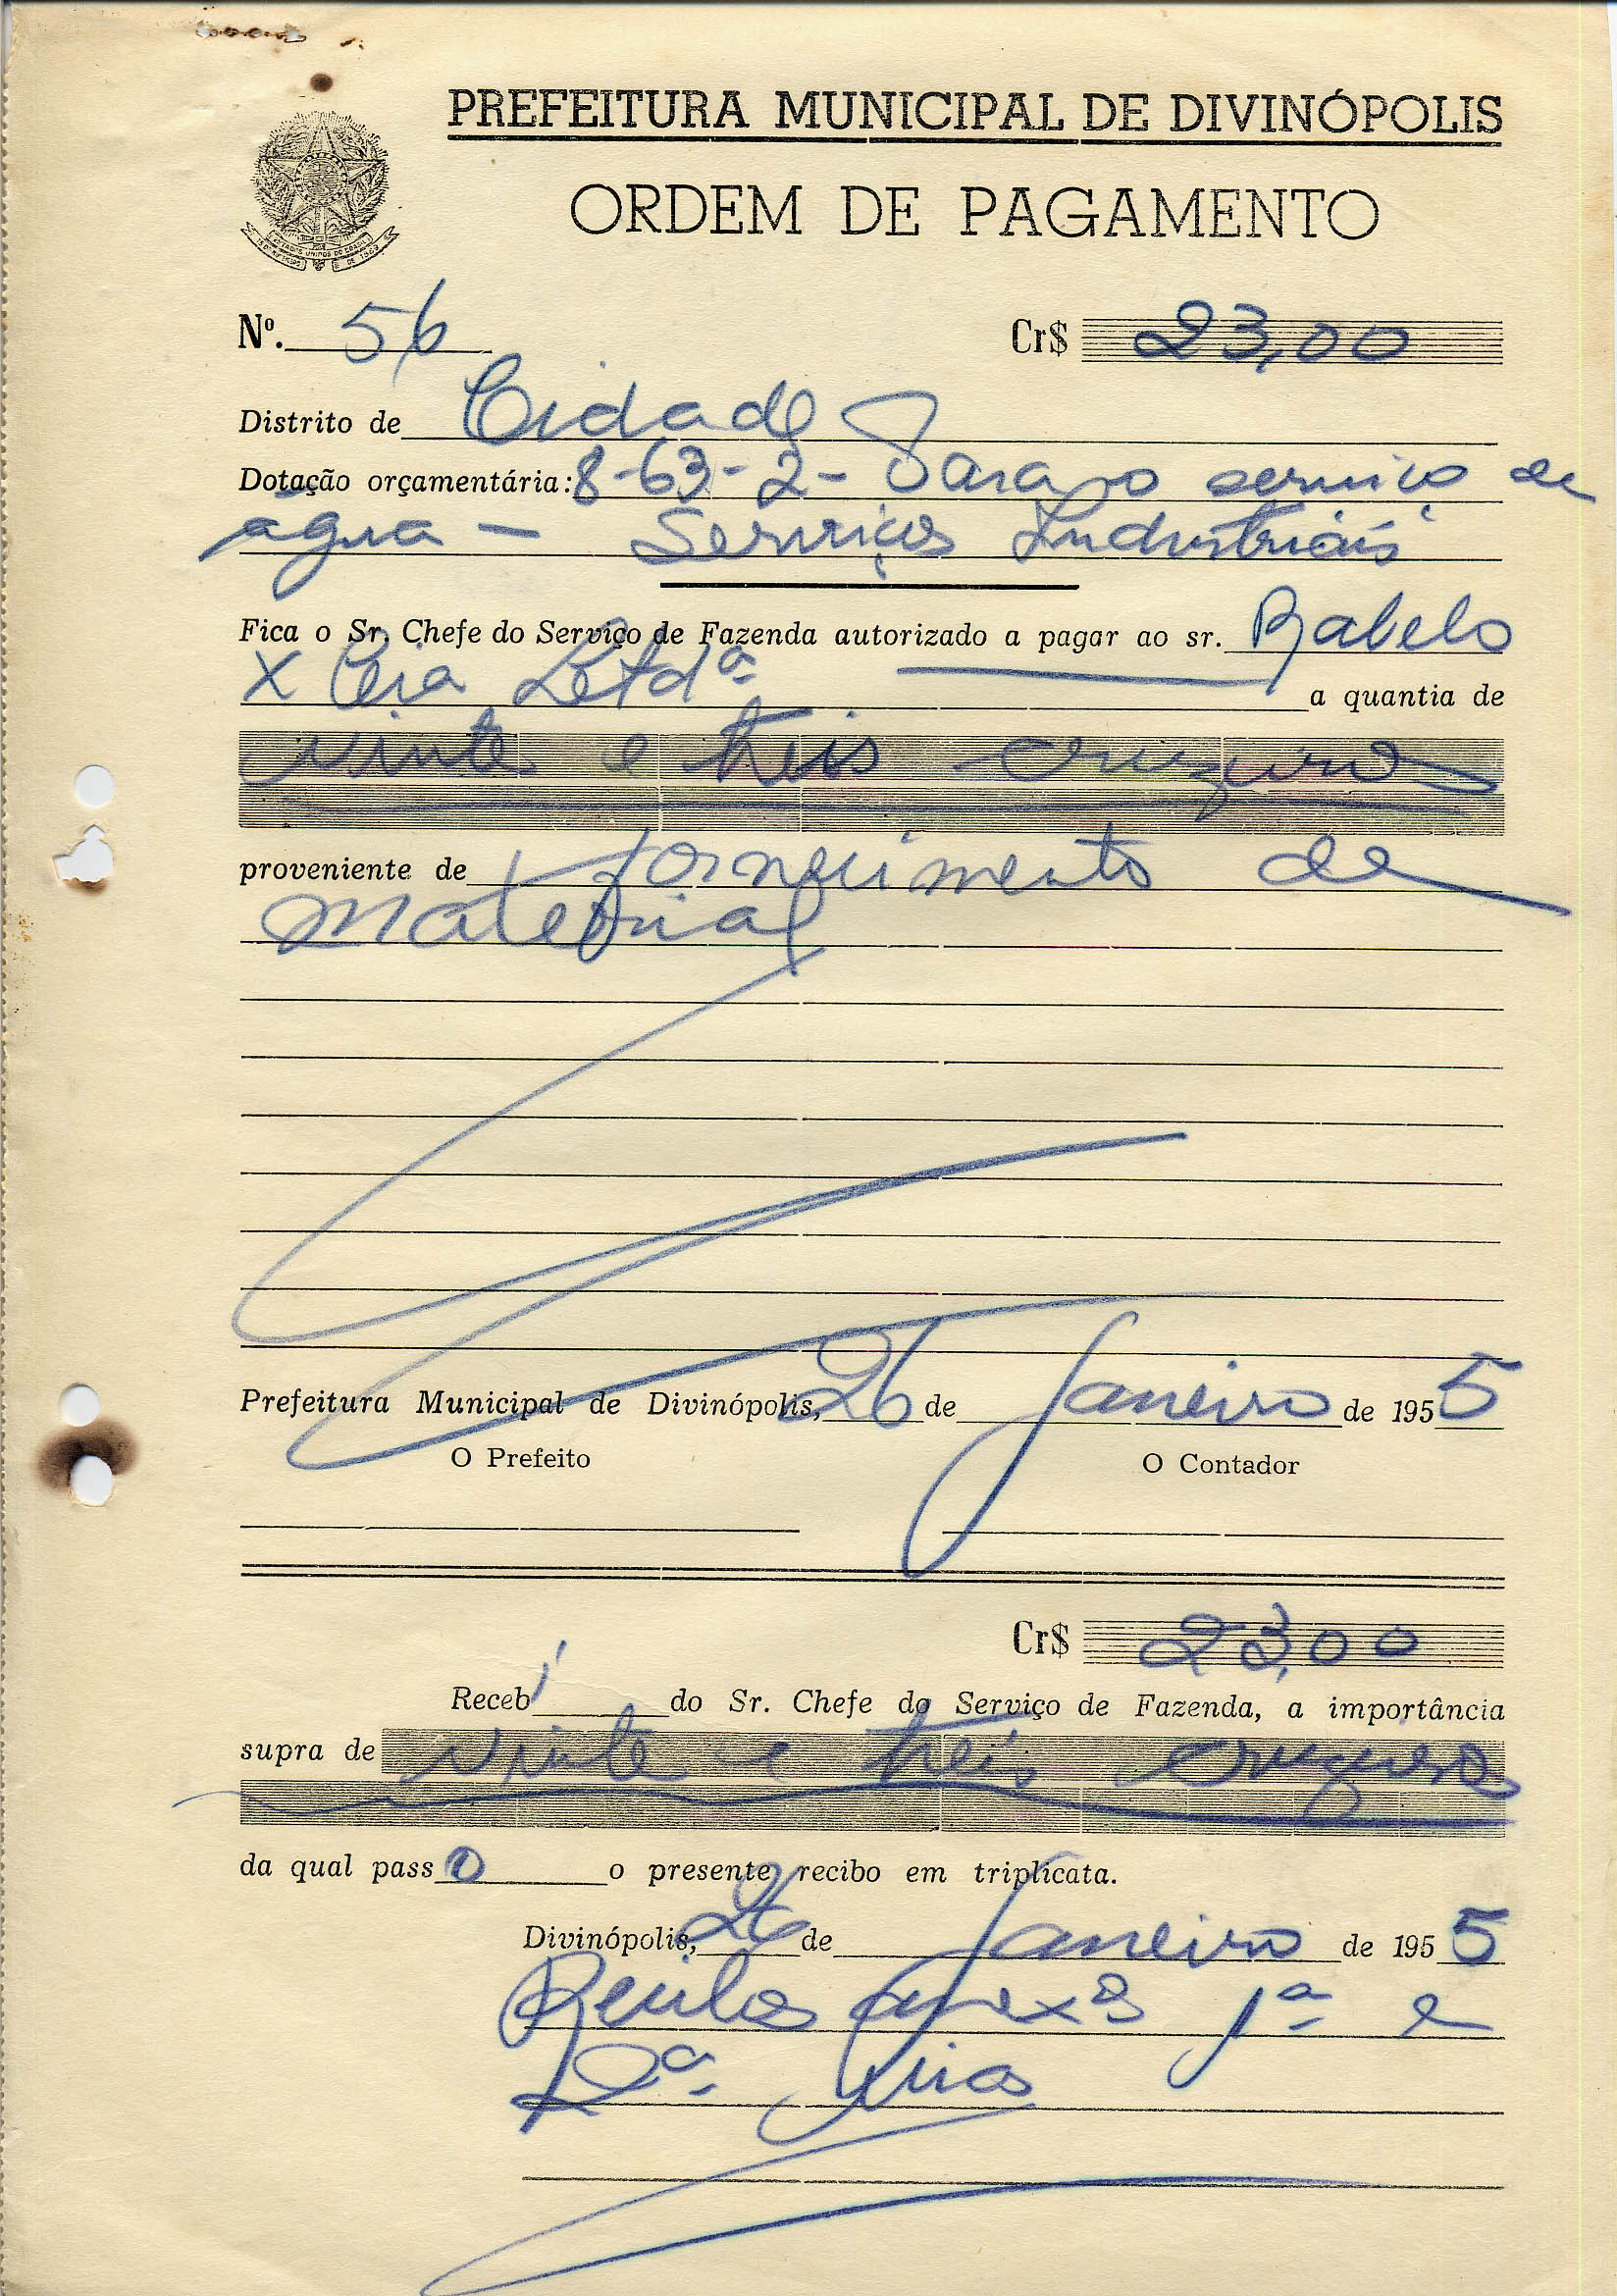 PREFEITURA MUNICIPAL DE DIVINÓPOLIS
ORDEM DE PAGAMENTO
Nº. 56 Cr$ 23,00
Distrito de Cidade
Dotação orçamentária: 8-63-2- Para o serviço de
água - Serviços Industriais
Fica o Sr. Chefe do Serviço de Fazenda autorizado a pagar ao sr. Rabelo
X Cia Letdª a quantia de
vinte e treis cruzeiros
proveniente de fornecimento de
material
Prefeitura Municipal de Divinópolis, 26 de Janeiro de 1955
O Prefeito O Contador
Cr$ 23,00
Recebi do Sr. Chefe do Serviço de Fazenda, a importância
supra de vinte e treis cruzeiros
da qual passo o presente recibo em triplicata.
Divinópolis, 26 de Janeiro de 1955
Recibos anexos 1ª e
2ª vias